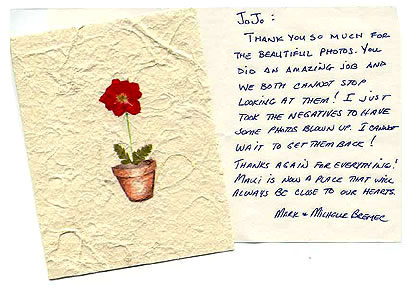 JOJO:
THANK YOU SO MUCH FOR
THE BEAUTIFUL PHOTOS. YOU
DID AN AMAZING JOB AND
WE BOTH CANNOT STOP
LOOKING AT THEM! I JUST
TOOK THE NEGATIVES TO HAVE
SOME PHOTOS BLOWN UP. I CANNOT
WAIT TO GET THEM BACK!
THANKS AGAIN FOR EVERYTHING!
MAUI IS NOW A PLACE THAT WILL
ALWAYS BE CLOSE TO OUR HEARTS.
MARK & MICHELLE BREMEC